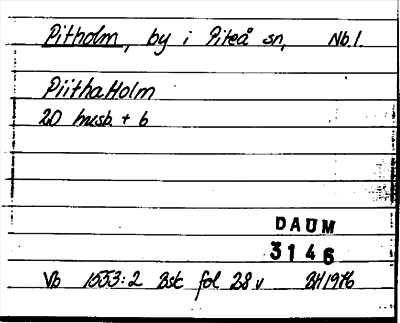 Pitholm, by i Piteå sn, Nb.l.
Piitha Holm
20 husb. + 6
DAUM
3146
Vb 1553:2 Bsk fol 28 v BH 1976